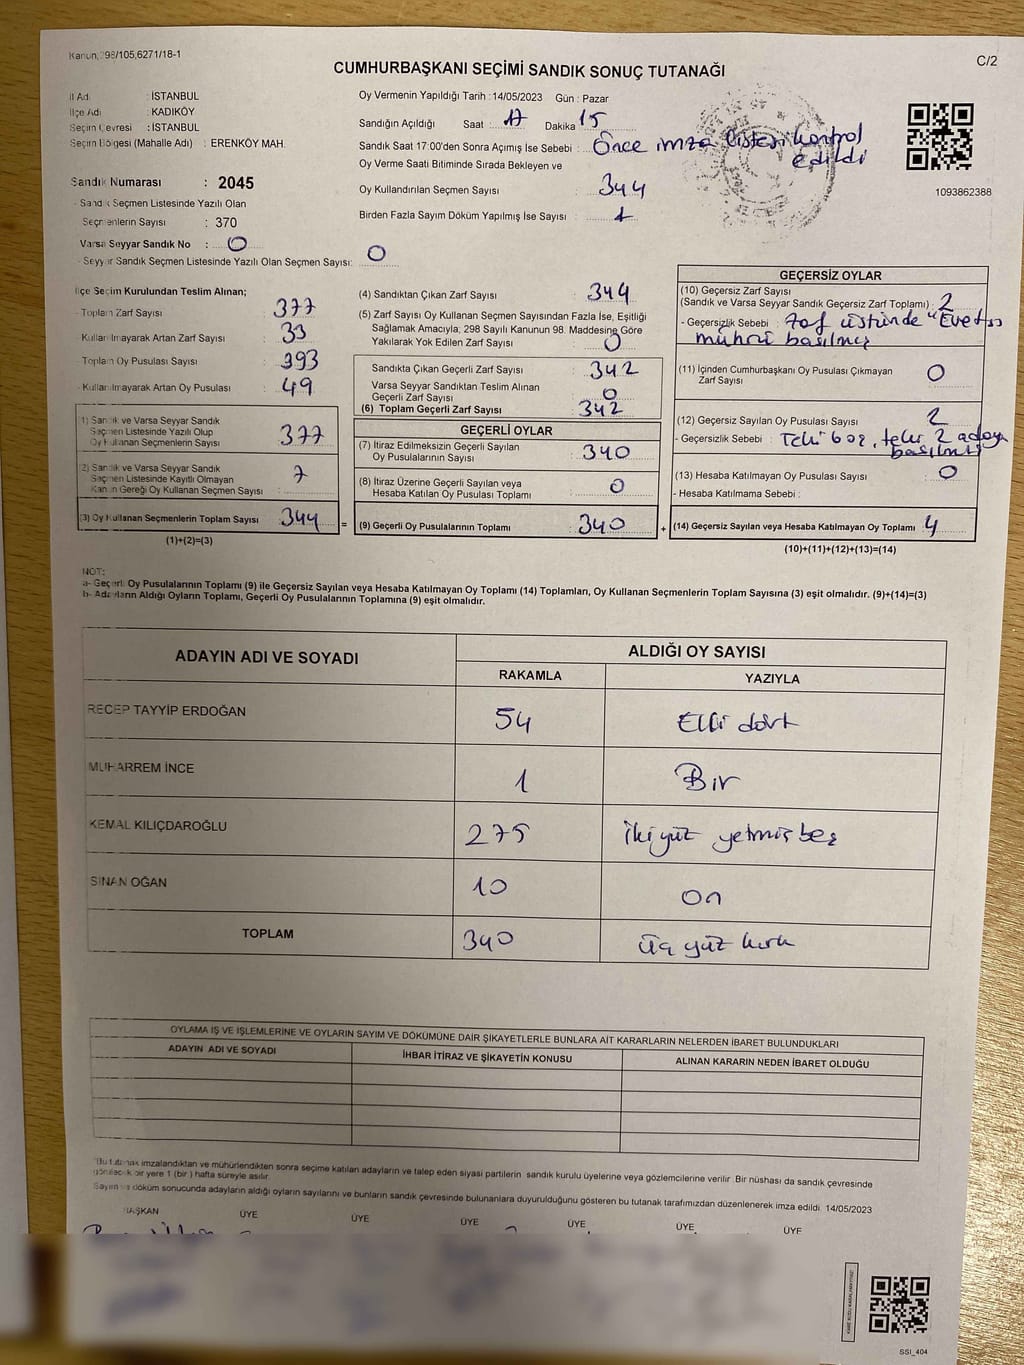 Kanun, 298/105,6271/18-1
C/2
CUMHURBAŞKANI SEÇİMİ SANDIK SONUÇ TUTANAĞI
İl Adı : İSTANBUL
İlçe Adı : KADIKÖY
Seçim Çevresi : İSTANBUL
Seçim Bölgesi (Mahalle Adı) : ERENKÖY MAH.
Sandık Numarası : 2045
- Sandık Seçmen Listesinde Yazılı Olan
Seçmenlerin Sayısı : 370
Varsa Seyyar Sandık No : 0
- Seyyar Sandık Seçmen Listesinde Yazılı Olan Seçmen Sayısı: 0
Oy Vermenin Yapıldığı Tarih : 14/05/2023 Gün : Pazar
Sandığın Açıldığı Saat : 17 Dakika : 15
Sandık Saat 17:00'den Sonra Açmış İse Sebebi : Önce imza listesi kontrol edildi
Oy Verme Saati Bitiminde Sırada Bekleyen ve
Oy Kullandırılan Seçmen Sayısı 344
Birden Fazla Sayım Döküm Yapılmış İse Sayısı : 1
1093862388
İlçe Seçim Kurulundan Teslim Alınan;
- Toplam Zarf Sayısı : 377
- Kullanılmayarak Artan Zarf Sayısı : 33
- Toplam Oy Pusulası Sayısı : 393
- Kullanılmayarak Artan Oy Pusulası : 49
1) Sandık ve Varsa Seyyar Sandık
Seçmen Listesinde Yazılı Olup
Oy Kullanan Seçmenlerin Sayısı : 377
2) Sandık ve Varsa Seyyar Sandık
Seçmen Listesinde Kayıtlı Olmayan
Kanun Gereği Oy Kullanan Seçmen Sayısı : 7
(3) Oy Kullanan Seçmenlerin Toplam Sayısı : 344 =
(1)+(2)=(3)
(4) Sandıktan Çıkan Zarf Sayısı : 344
(5) Zarf Sayısı Oy Kullanan Seçmen Sayısından Fazla İse, Eşitliği
Sağlamak Amacıyla; 298 Sayılı Kanunun 98. Maddesine Göre
Yakılarak Yok Edilen Zarf Sayısı : 0
Sandıkta Çıkan Geçerli Zarf Sayısı : 342
Varsa Seyyar Sandıktan Teslim Alınan
Geçerli Zarf Sayısı : 0
(6) Toplam Geçerli Zarf Sayısı : 342
GEÇERLİ OYLAR
(7) İtiraz Edilmeksizin Geçerli Sayılan
Oy Pusulalarının Sayısı : 340
(8) İtiraz Üzerine Geçerli Sayılan veya
Hesaba Katılan Oy Pusulası Toplamı : 0
(9) Geçerli Oy Pusulalarının Toplamı : 340 +
GEÇERSİZ OYLAR
(10) Geçersiz Zarf Sayısı
(Sandık ve Varsa Seyyar Sandık Geçersiz Zarf Toplamı) : 2
- Geçersizlik Sebebi : Zarf üstünde "Evet"
mührü basılmış
(11) İçinden Cumhurbaşkanı Oy Pusulası Çıkmayan
Zarf Sayısı : 0
(12) Geçersiz Sayılan Oy Pusulası Sayısı : 2
- Geçersizlik Sebebi : Teki boş, teki 2 adaya
basılmış
(13) Hesaba Katılmayan Oy Pusulası Sayısı : 0
- Hesaba Katılmama Sebebi :
(14) Geçersiz Sayılan veya Hesaba Katılmayan Oy Toplamı : 4
(10)+(11)+(12)+(13)=(14)
NOT:
a- Geçerli Oy Pusulalarının Toplamı (9) ile Geçersiz Sayılan veya Hesaba Katılmayan Oy Toplamı (14) Toplamları, Oy Kullanan Seçmenlerin Toplam Sayısına (3) eşit olmalıdır. (9)+(14)=(3)
b- Adayların Aldığı Oyların Toplamı, Geçerli Oy Pusulalarının Toplamına (9) eşit olmalıdır.
ADAYIN ADI VE SOYADI ALDIĞI OY SAYISI
RAKAMLA YAZIYLA
RECEP TAYYİP ERDOĞAN 54 Elli dört
MUHARREM İNCE 1 Bir
KEMAL KILIÇDAROĞLU 275 iki yüz yetmiş beş
SİNAN OĞAN 10 On
TOPLAM 340 üç yüz kırk
OYLAMA İŞ VE İŞLEMLERİNE VE OYLARIN SAYIM VE DÖKÜMÜNE DAİR ŞİKAYETLERLE BUNLARA AİT KARARLARIN NELERDEN İBARET BULUNDUKLARI
ADAYIN ADI VE SOYADI İHBAR İTİRAZ VE ŞİKAYETİN KONUSU ALINAN KARARIN NEDEN İBARET OLDUĞU
*Bu tutanak imzalandıktan ve mühürlendikten sonra seçime katılan adayların ve talep eden siyasi partilerin sandık kurulu üyelerine veya gözlemcilerine verilir. Bir nüshası da sandık çevresinde
görülecek bir yere 1 (bir) hafta süreyle asılır.
Sayım ve döküm sonucunda adayların aldığı oyların sayılarını ve bunların sandık çevresinde bulunanlara duyurulduğunu gösteren bu tutanak tarafımızdan düzenlenerek imza edildi. 14/05/2023
BAŞKAN ÜYE ÜYE ÜYE ÜYE ÜYE ÜYE
SSI_404